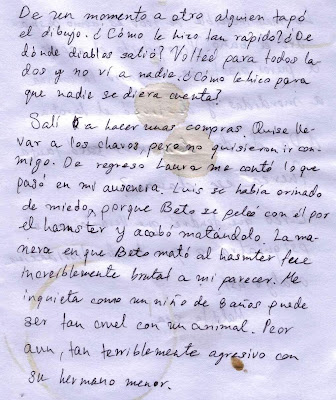 De un momento a otro alguien tapó
el dibujo. ¿Cómo le hizo tan rápido? ¿De
dónde diablos salió? Volteé para todos la-
dos y no ví a nadie. ¿Cómo le hizo para
que nadie se diera cuenta?
Salí a hacer unas compras. Quise lle-
var a los chavos, pero no quisieron ir con-
migo. De regreso Laura me contó lo que
pasó en mi ausencia. Luis se había orinado
de miedo, porque Beto se peleó con él por
el hamster y acabó matándolo. La ma-
nera en que Beto mató al hasmter fue
increiblemente brutal a mi parecer. Me
inquieta como un niño de 8 años puede
ser tan cruel con un animal. Peor
aun, tan terriblemente agresivo con
su hermano menor.